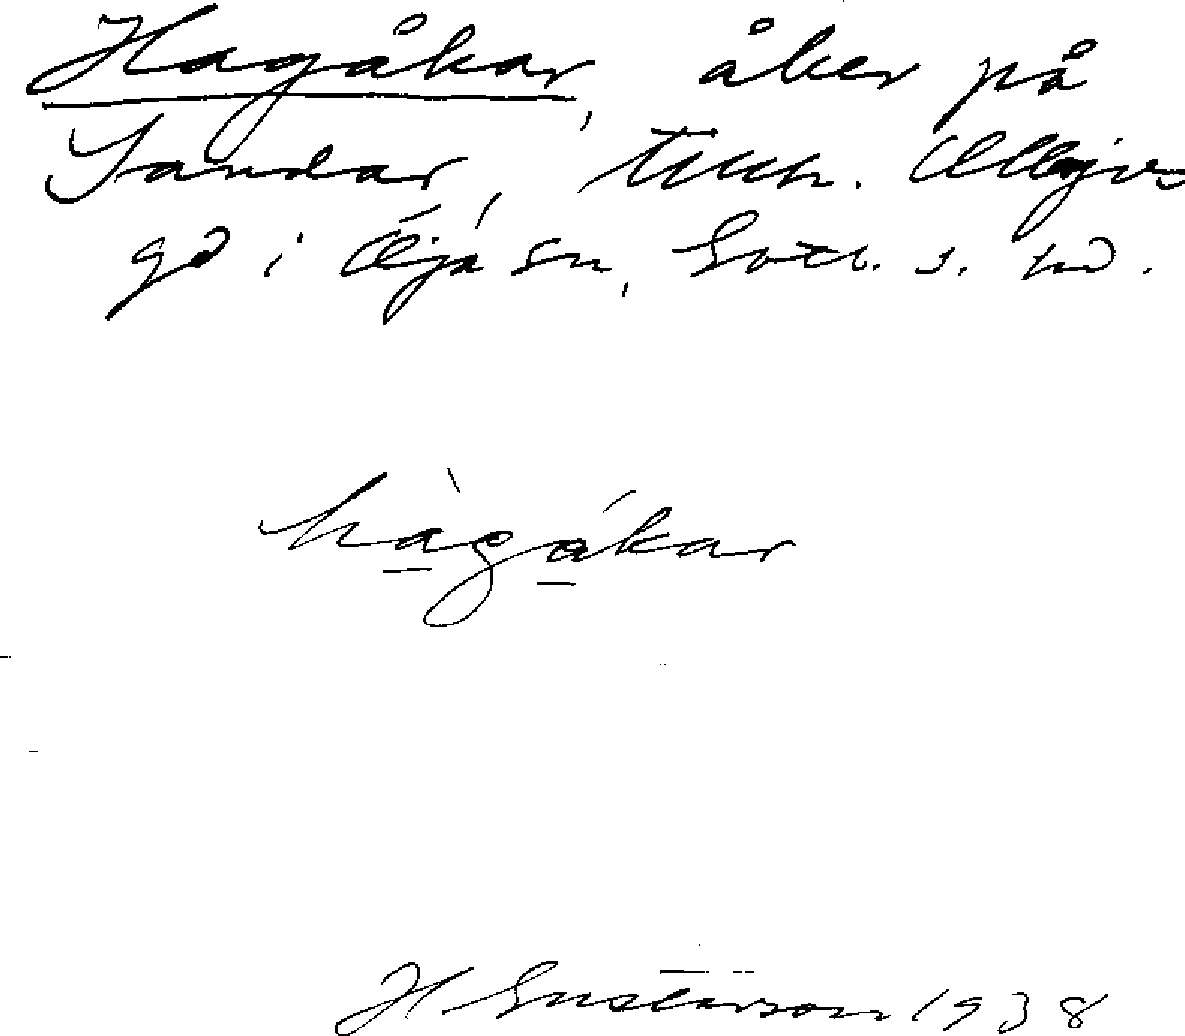 Hagåkar, åker på
Sandar, tillh. Ollajvs
gd i Öja sn, Gotl. s. hd.
hàgákar
H Gustavson 1938